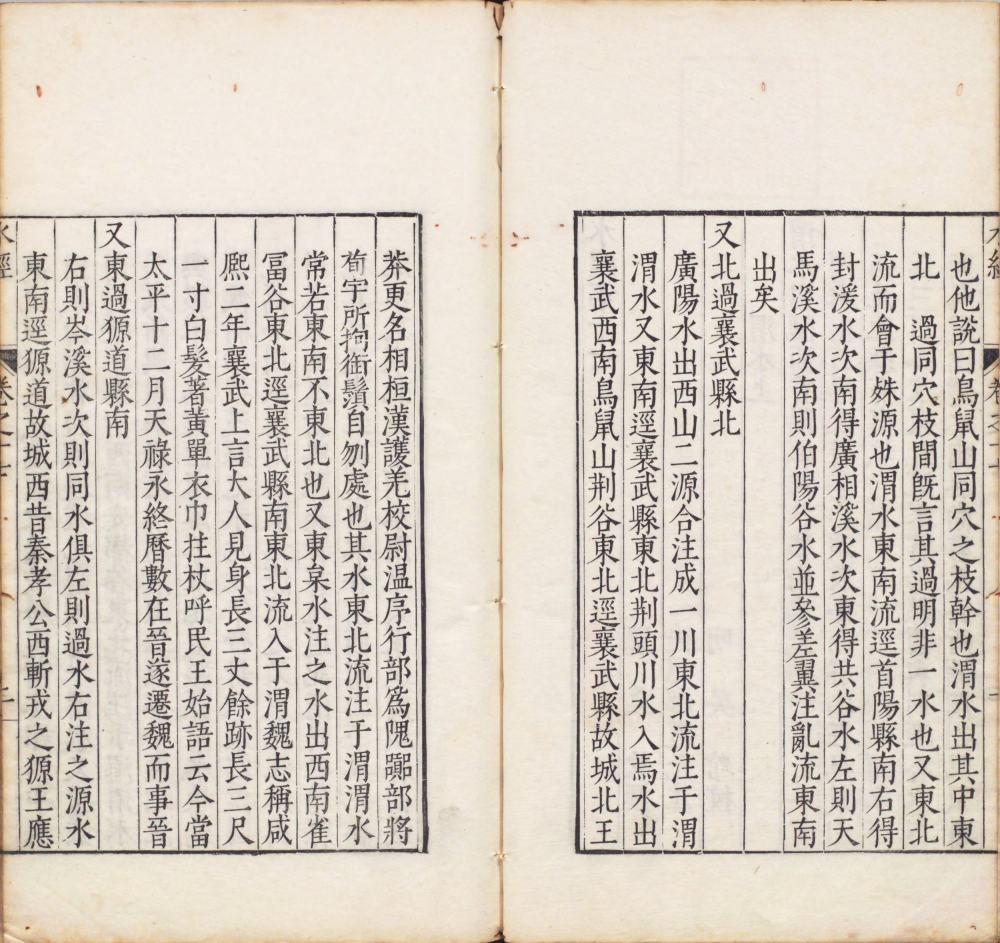 也他說曰鳥鼠山同穴之枝幹也渭水出其中東
北　過同穴枝間旣言其過明非一水也又東北
流而會于殊源也渭水東南流逕首陽縣南右得
封溪水次南得廣相溪水次東得共谷水左則天
馬溪水次南則伯陽谷水並參差翼注亂流東南
出矣
又北過襄武縣北
廣陽水出西山二源合注成一川東北流注于渭
渭水又東南逕襄武縣東北荆頭川水入焉水出
襄武西南鳥鼠山荆谷東北逕襄武縣故城北王
莽更名相桓漢護羌校尉温序行部爲隗嚻部將
荀宇所拘銜鬚自刎處也其水東北流注于渭渭水
常若東南不東北也又東枲水注之水出西南雀
冨谷東北逕襄武縣南東北流入于渭魏志稱咸
熈二年襄武上言大人見身長三丈餘跡長三尺
一寸白髪著黄單衣巾拄杖呼民王始語云今當
太平十二月天祿永終曆數在晉遂遷魏而事晉
又東過獂道縣南
右則岑溪水次則同水俱左則過水右注之源水
東南逕獂道故城西昔秦孝公西斬戎之獂王應
水經
卷之十七
二